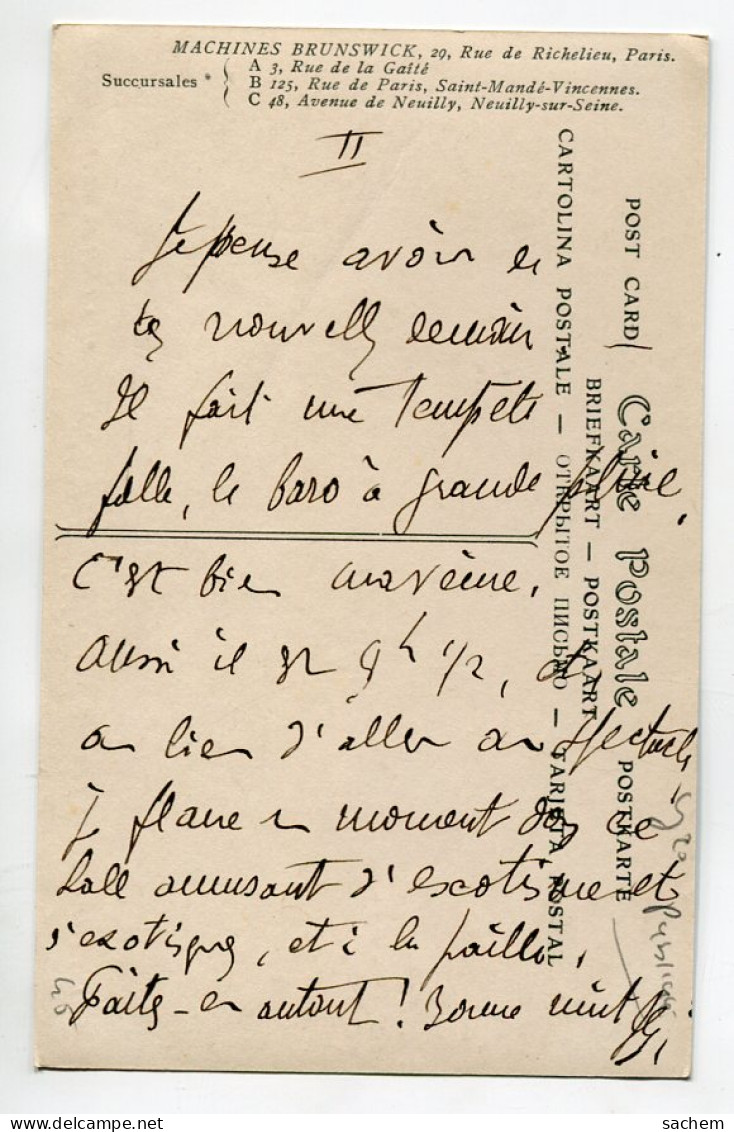 MACHINES BRUNSWICK, 29, Rue de Richelieu, Paris.
Succursales
A 3, Rue de la Gaîté
B 125, Rue de Paris, Saint-Mandé-Vincennes.
C 48, Avenue de Neuilly, Neuilly-sur-Seine.
II
Je pense avoir de
tes nouvelles demain
Il fait une tempête
folle, le baro à grande pluie,
C'est bien
aussi il est 9h 1/2, et
au lieu d'aller au spectacle
je flane un moment dans ce
hall amusant d'
et à la
Faites-en autant! Bonne nuit
POST CARD
Carte Postale
POSTKARTE
BRIEFKAART — POSTKAART
CARTOLINA POSTALE — ОТКРЫТОЕ ПИСЬМО — TARJETA POSTAL
sachem